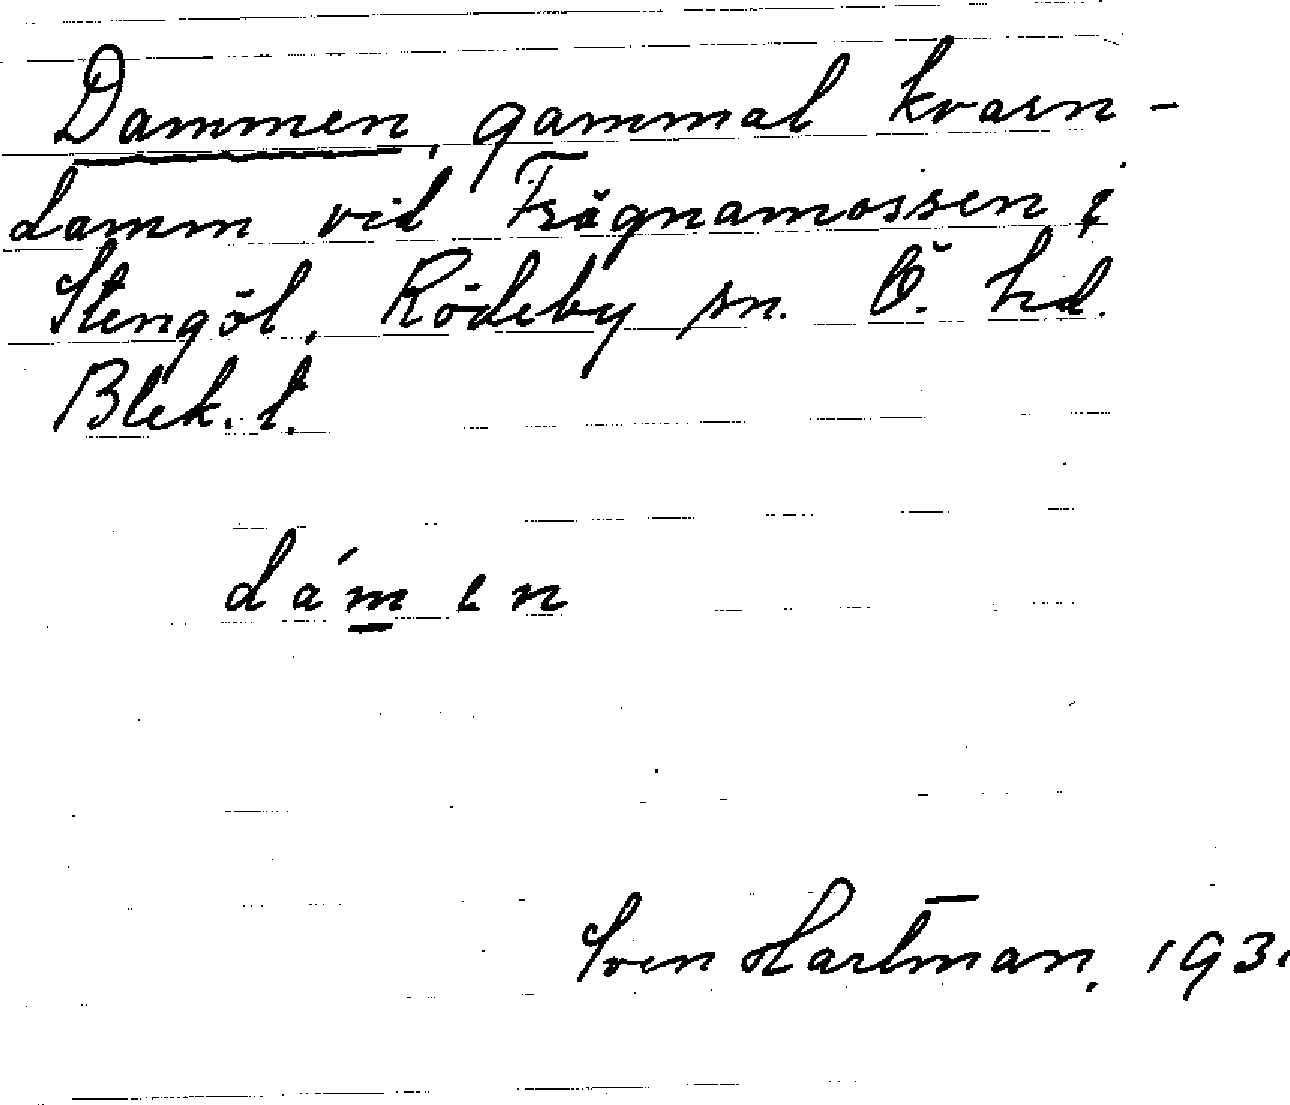 Dammen, gammal kvarn-
damm vid Frägnamossen i
Stengöl, Rödeby sn. Ö. hd.
Blek. l.
dám en
Sven Hartman. 193